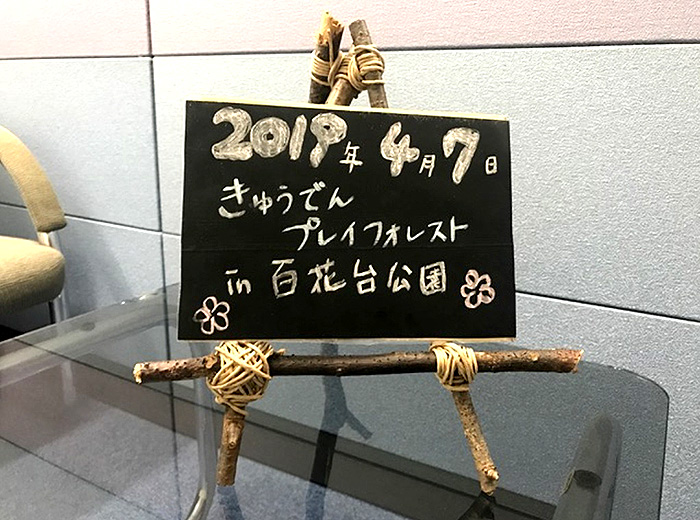 2019年4月7日
きゅうでん
プレイフォレスト
in 百花台公園